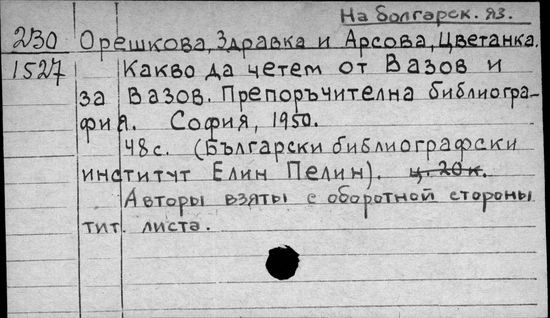 На болгарск. яз.
230 Орешкова, Здравка и Арсова, Цветанка.
1527 Какво да четем от Вазов и
за Вазов. Препоръчителна библиогра-
фия. София, 1950.
48с. (Български библиографски
институт Елин Пелин). ц. 20 к.
Авторы взяты с оборотной стороны
тит. листа.